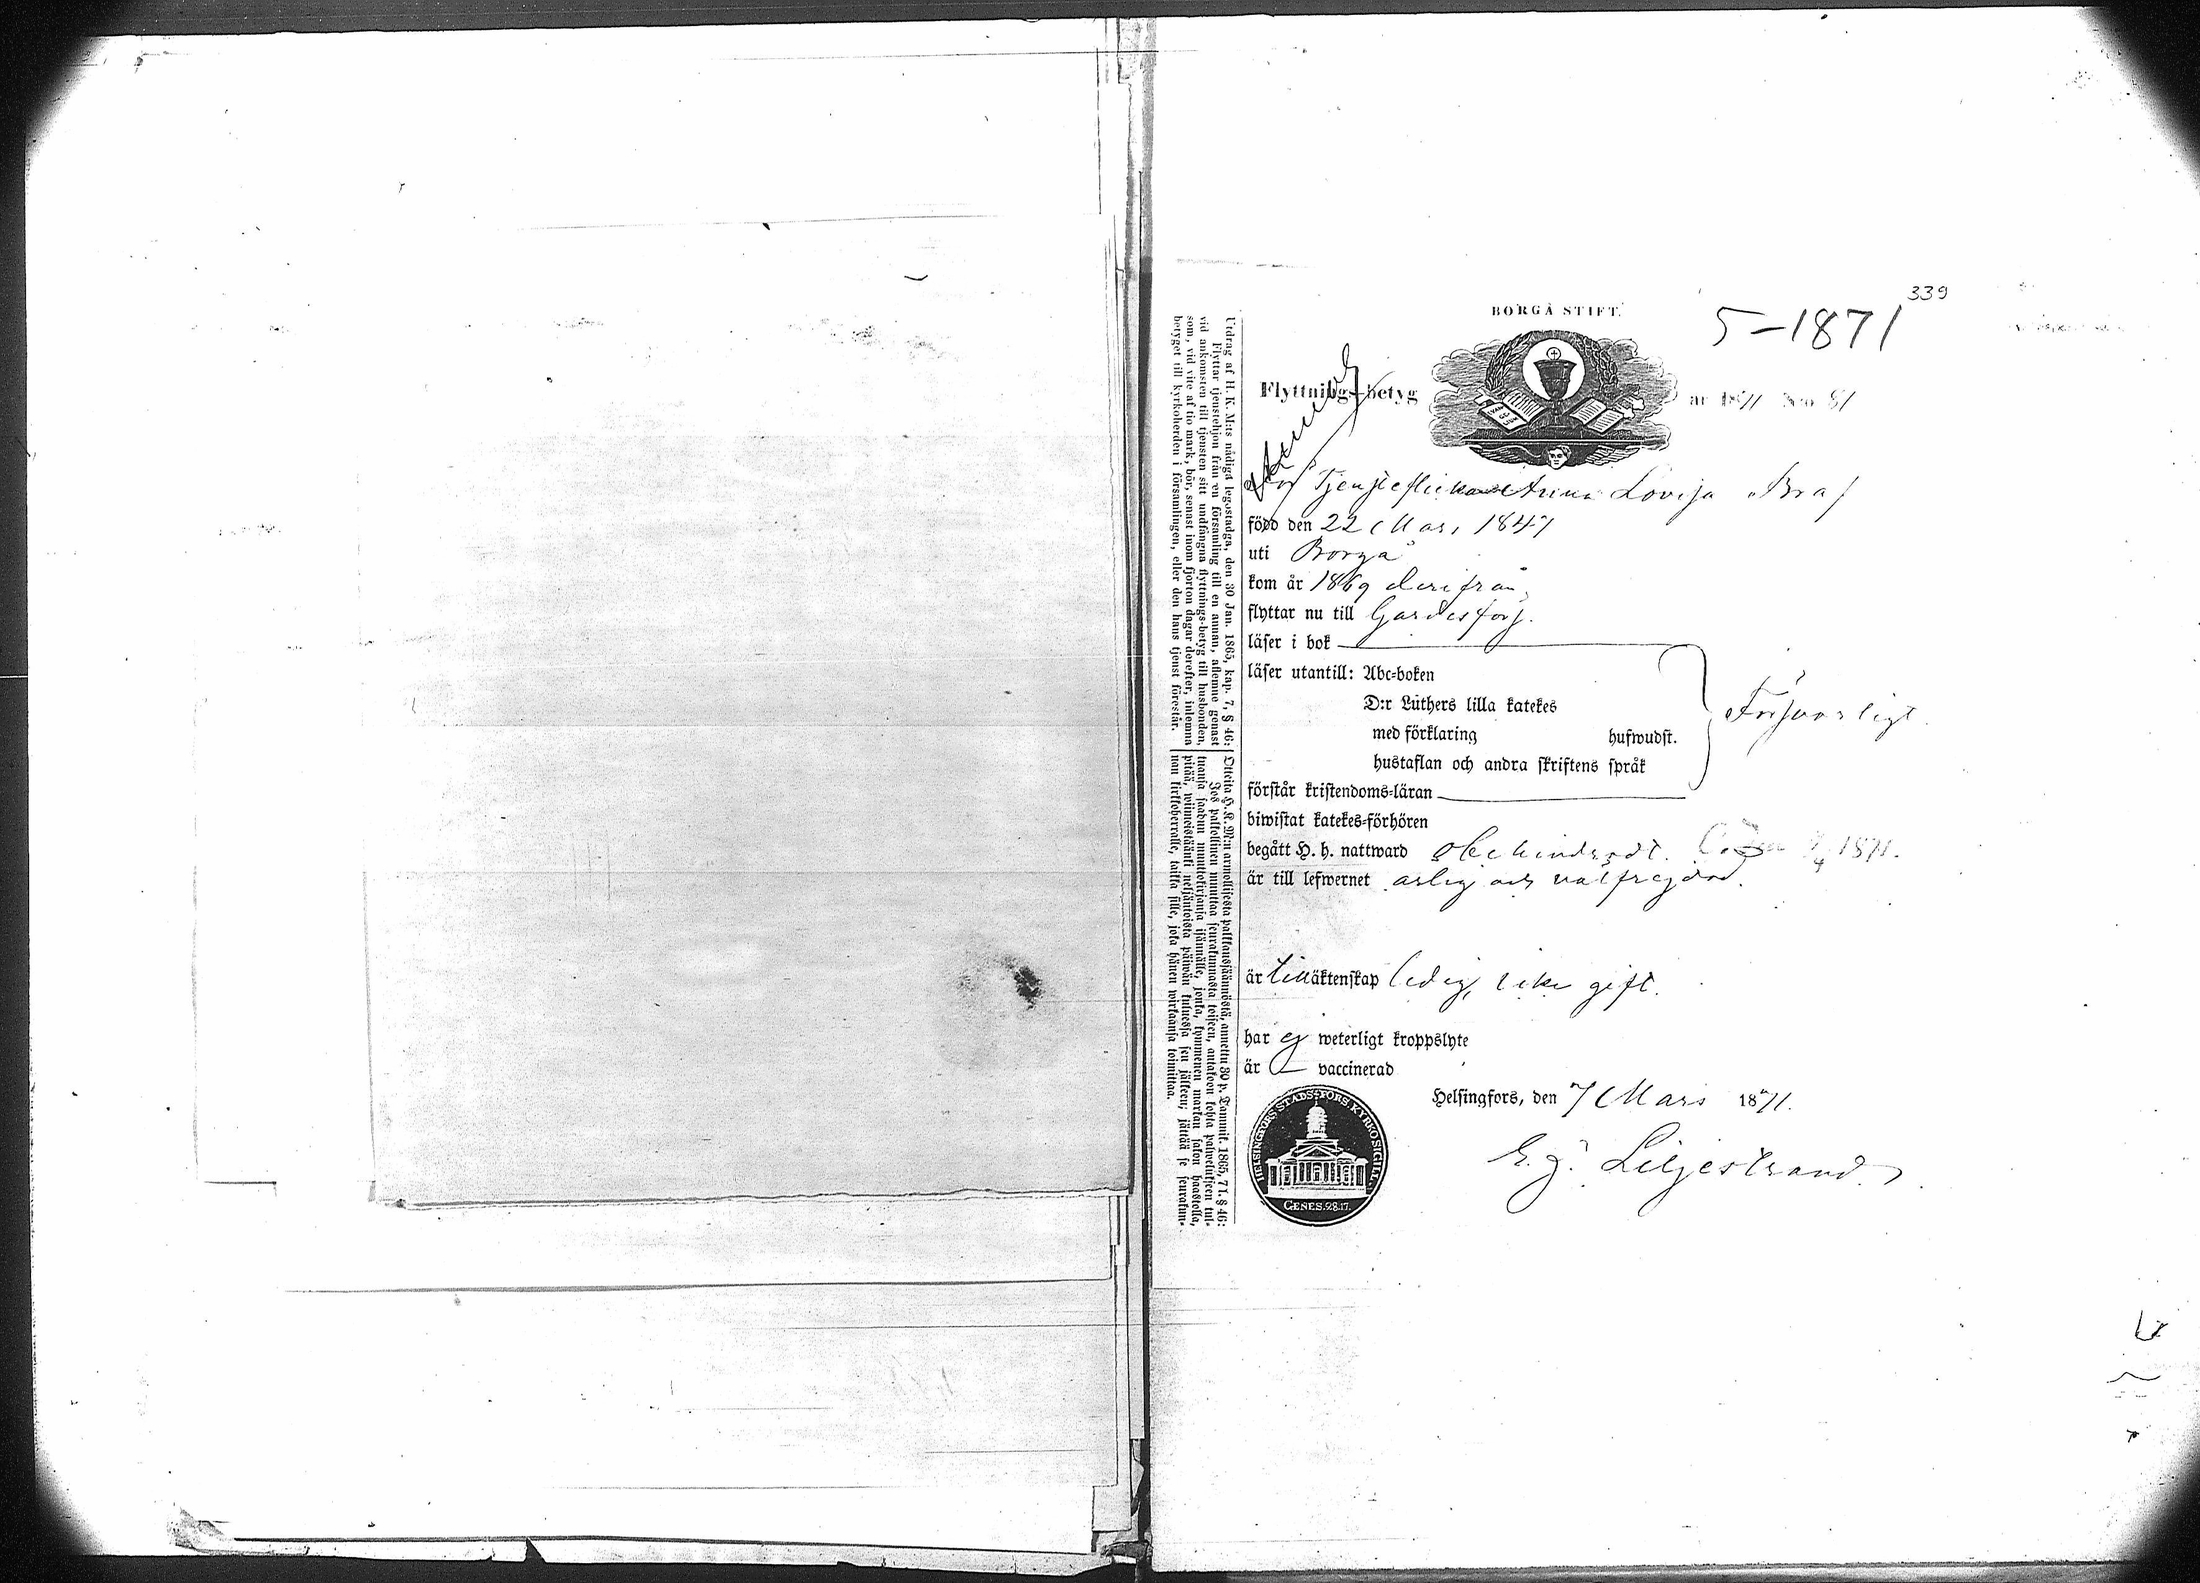 339
BORGÅ STIFT.
5-1871
Flyttnings-betyg
år 1871 N:o 81
för Tjensteflickan Anna Lovisa Bra
född den 22 Mars 1847
uti Borgå
kom år 1869 derifrån,
flyttar nu till Gardesförs.
läser i bok
läser utantill: Abc-boken
D:r Luthers lilla katekes
med förklaring hufwudst.
hustaflan och andra skriftens språk
förstår kristendoms-läran
Försvarligt.
biwistat katekes-förhören
begått H. h. nattward obehindradt. 1871.
är till lefwernet ärlig och välfrejdad.
är till äktenskap ledig, icke gift.
har ej weterligt kroppslyte
är vaccinerad
Helsingfors, den 7 Mars 1871.
Liljestrand.
HELSINGFORS STADSFÖRS. KYRKOSIGILL
GENES. 28.17.
Utdrag af H. K. M:ts nådiga legostadga, den 30 Jan. 1865, kap. 7, § 46:
Flyttar tjenstehjon från en församling till en annan, aflemne genast
vid ankomsten till tjensten sitt undfångna flyttnings-betyg till husbonden,
som, vid vite af tio mark, bör, senast inom fjorton dagar derefter, inlemna
betyget till kyrkoherden i församlingen, eller den hans tjenst förestår.
Otteita H. K. M:n armollisesta palkkaussäännöstä, annettu 30 p. Tammik. 1865, 7 l. § 46:
Jos palkollinen muuttaa seurakunnasta toiseen, antakoon kohta palwelukseen tul-
tuansa saadun muuttokirjansa isännälle, jonka, kymmenen markan sakon haastolla,
pitää, wiimeistäänki neljäntoista päiwän kuluessa sen jälkeen, jättää se seurakun-
nan kirkkoherralle, taikka sille, joka hänen wirkaansa toimittaa.